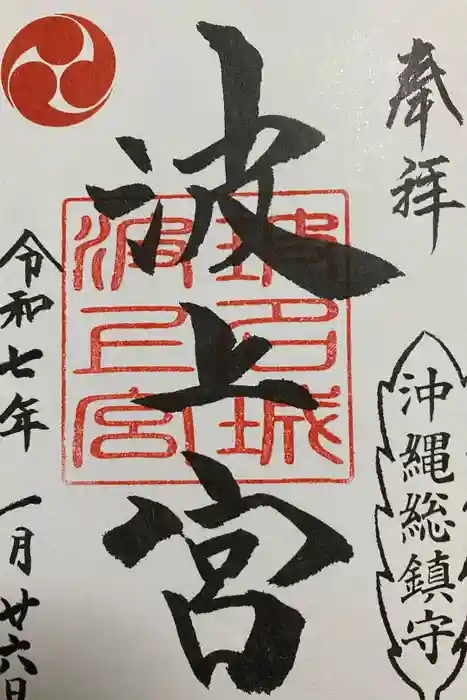 奉拝
沖縄総鎮守
波上宮
琉球
名
城
波上宮
令和七年 一月廿六日